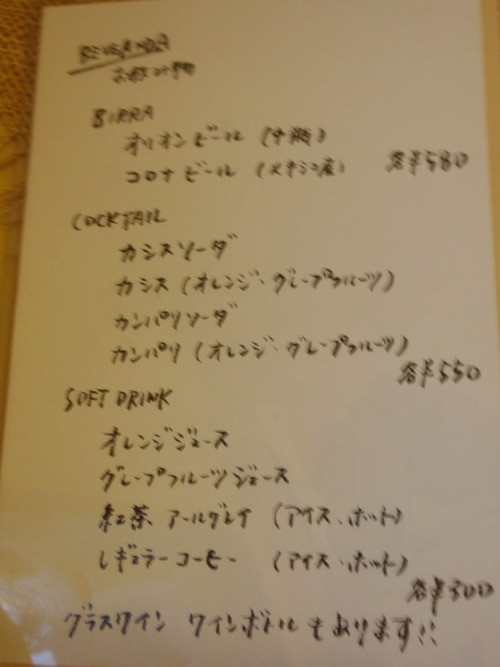 BEVANDA
お飲み物
BIRRA
オリオンビール (中瓶)
コロナビール (メキシコ産) 各¥580
COCKTAIL
カシスソーダ
カシス (オレンジ・グレープフルーツ)
カンパリソーダ
カンパリ (オレンジ・グレープフルーツ)
各¥550
SOFT DRINK
オレンジジュース
グレープフルーツジュース
紅茶 アールグレイ (アイス・ホット)
レギュラーコーヒー (アイス・ホット)
各¥300
グラスワイン ワインボトルもあります!!